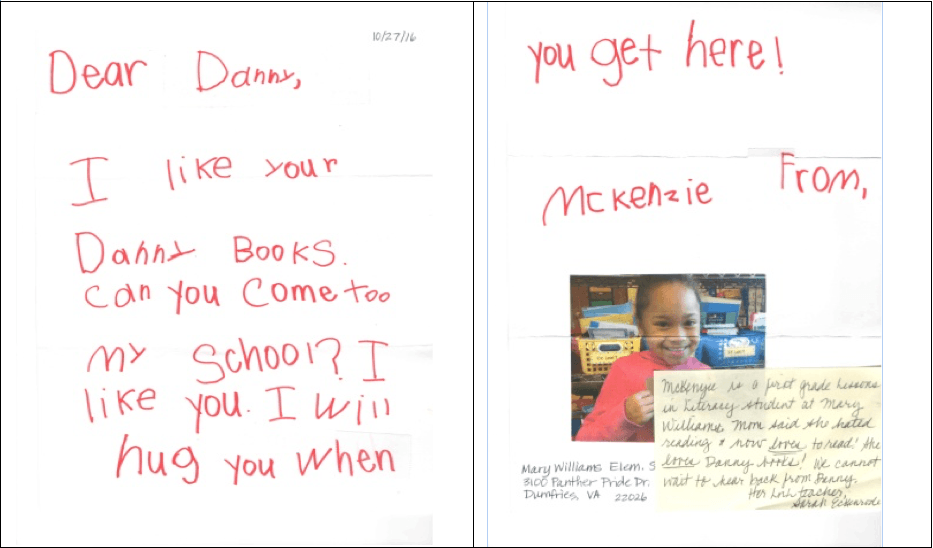 10/27/16
Dear Danny,
I like your
Danny Books.
can you Come too
my School? I
like you. I will
hug you when
you get here!
From,
McKenzie
McKenzie is a first grade Lessons
in Literacy student at Mary
Williams. Mom said she hated
reading & now loves to read! She
loves Danny books! We cannot
wait to hear back from Danny.
Her LinL teacher,
Sarah
Mary Williams Elem. S
3100 Panther Pride Dr.
Dumfries, VA 22026